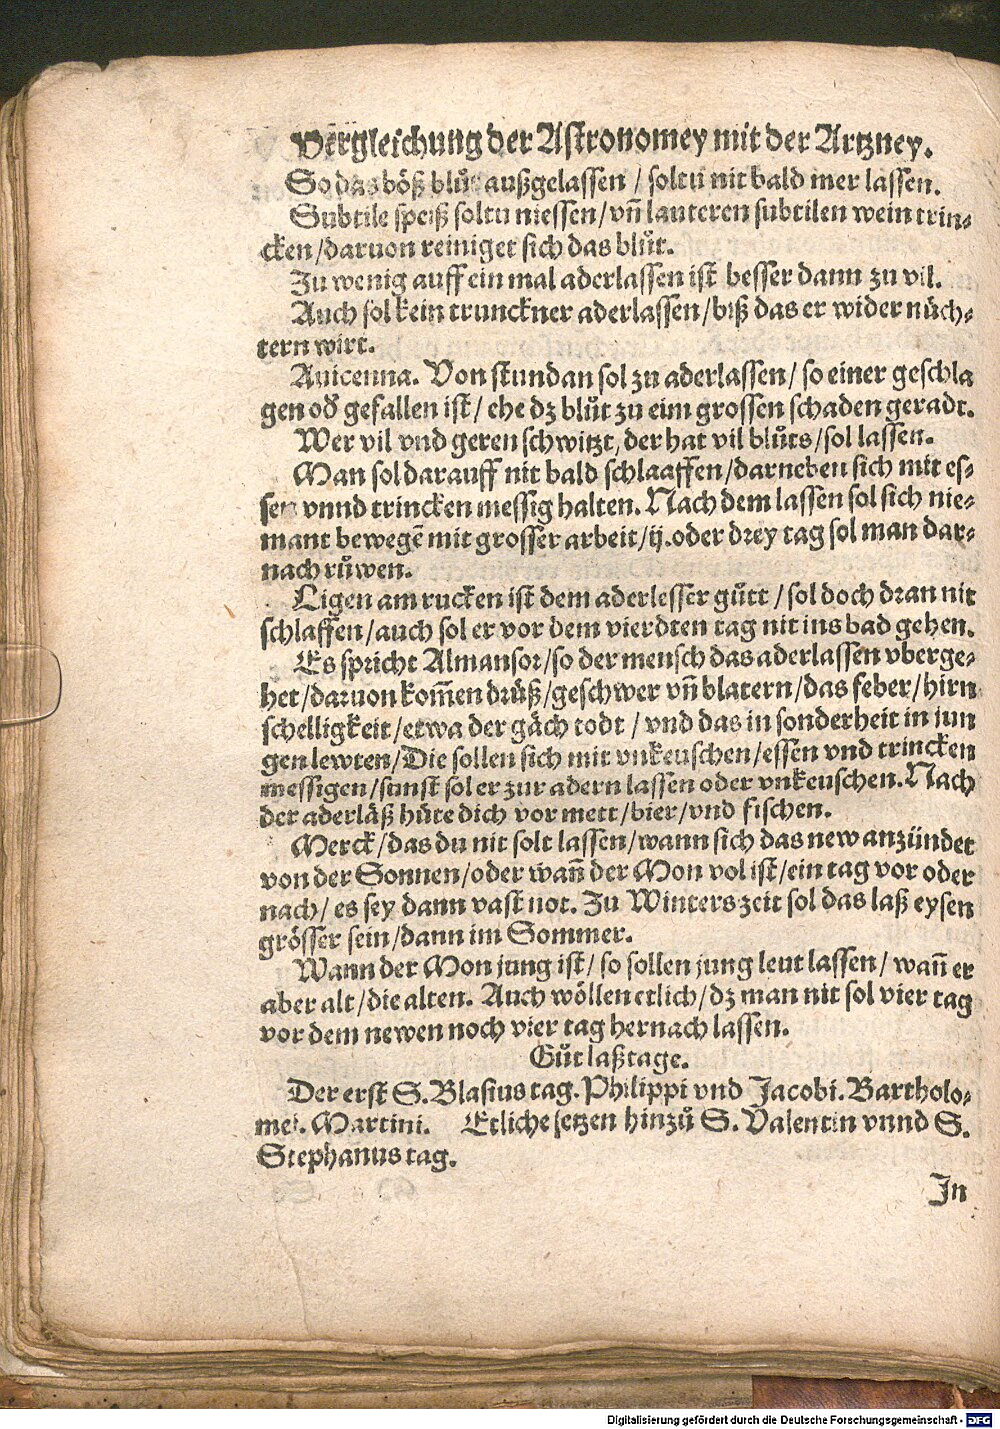 Vergleichung der Astronomey mit der Artzney.
So das böß blůt außgelassen / soltu nit bald mer lassen.
Subtile speiß soltu niessen/vñ lauteren subtilen wein trin⸗
cken/daruon reiniget sich das blůt.
Zu wenig auff ein mal aderlassen ist besser dann zu vil.
Auch sol kein trunckner aderlassen/biß das er wider nüch⸗
tern wirt.
Auicenna. Von stund an sol zu aderlassen/ so einer geschla
gen oď gefallen ist/ ehe dz blůt zu eim grossen schaden geradt.
Wer vil vnd geren schwitzt, der hat vil blůts/sol lassen.
Man sol darauff nit bald schlaaffen/darneben sich mit es⸗
sen vnnd trincken messig halten. Nach dem lassen sol sich nie⸗
mant bewegē mit grosser arbeit/ij.oder drey tag sol man dar⸗
nach růwen.
Ligen am rucken ist dem aderlesser gůtt/sol doch dran nit
schlaffen/auch sol er vor dem vierdten tag nit ins bad gehen.
Es spricht Almansor/so der mensch das aderlassen vberge⸗
het/daruon kom̄en drüß/geschwer vñ blatern/das feber/hirn
schelligkeit/etwa der gäch todt / vnd das in sonderheit in jun
gen lewten/Die sollen sich mit vnkeuschen/essen vnd trincken
messigen/sunst sol er zur adern lassen oder vnkeuschen. Nach
der aderläß hüte dich vor mett/bier/vnd fischen.
Merck/das du nit solt lassen/wann sich das new anzündet
von der Sonnen/oder wañ der Mon vol ist/ein tag vor oder
nach/ es sey dann vast not. Zu Winters zeit sol das laß eysen
grösser sein/dann im Sommer.
Wann der Mon jung ist/ so sollen jung leut lassen/ wañ er
aber alt/die alten. Auch wöllen etlich/dz man nit sol vier tag
vor dem newen noch vier tag hernach lassen.
Gůt laßtage.
Der erst S. Blasius tag. Philippi vnd Jacobi. Bartholo⸗
mei. Martini. Etliche setzen hinzů S. Valentin vnnd S.
Stephanus tag.
In
Digitalisierung gefördert durch die Deutsche Forschungsgemeinschaft - DFG